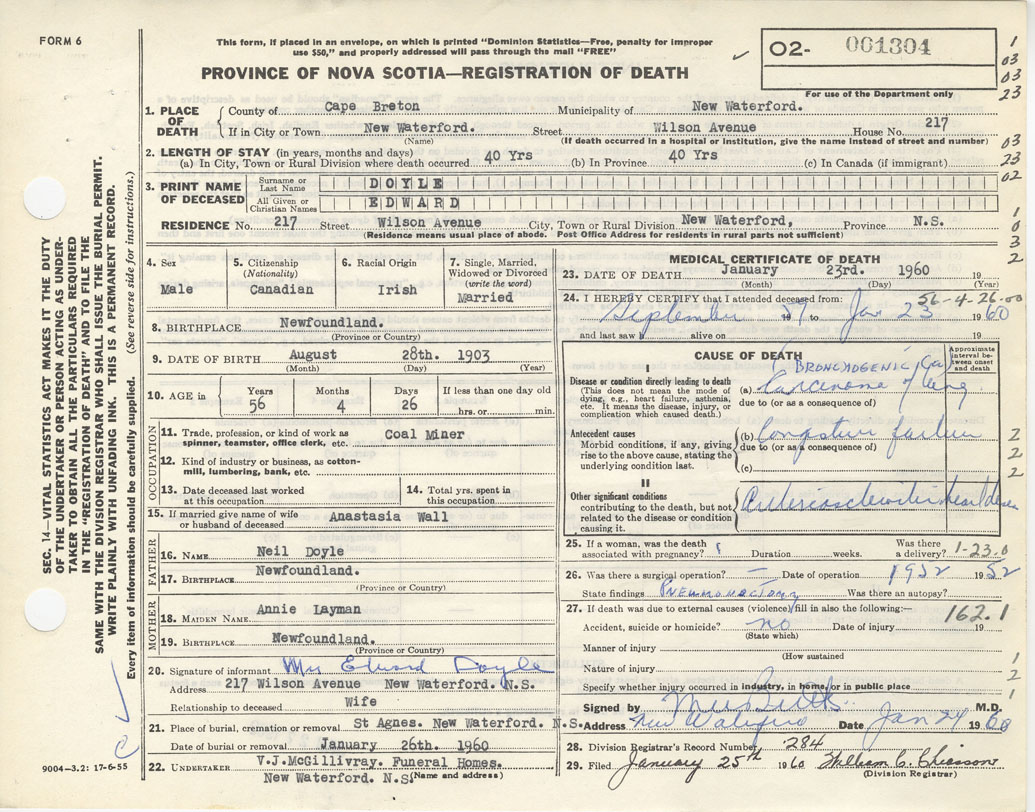 FORM 6
This form, if placed in an envelope, on which is printed "Dominion Statistics—Free, penalty for improper
use $50," and properly addressed will pass through the mail "FREE"
O2- 001304
For use of the Department only
PROVINCE OF NOVA SCOTIA—REGISTRATION OF DEATH
1. PLACE OF DEATH County of Cape Breton Municipality of New Waterford.
If in City or Town New Waterford. Street Wilson Avenue House No. 217
(Name) (If death occurred in a hospital or institution, give name instead of street and number)
2. LENGTH OF STAY (in years, months and days)
(a) In City, Town or Rural Division where death occurred 40 Yrs (b) In Province 40 Yrs (c) In Canada (if immigrant)
3. PRINT NAME OF DECEASED Surname or Last Name DOYLE
All Given or Christian Names EDWARD
RESIDENCE No. 217 Street Wilson Avenue City, Town or Rural Division New Waterford, Province N.S.
(Residence means usual place of abode. Post Office Address for residents in rural parts not sufficient)
4. Sex Male
5. Citizenship (Nationality) Canadian
6. Racial Origin Irish
7. Single, Married, Widowed or Divorced (write the word) Married
8. BIRTHPLACE Newfoundland.
(Province or Country)
9. DATE OF BIRTH August 28th. 1903
(Month) (Day) (Year)
10. AGE in Years 56 Months 4 Days 26 If less than one day old hrs. or min.
OCCUPATION
11. Trade, profession, or kind of work as spinner, teamster, office clerk, etc. Coal Miner
12. Kind of industry or business, as cotton-mill, lumbering, bank, etc.
13. Date deceased last worked at this occupation
14. Total yrs. spent in this occupation
15. If married give name of wife or husband of deceased Anastasia Wall
FATHER
16. NAME Neil Doyle
17. BIRTHPLACE Newfoundland.
(Province or Country)
MOTHER
18. MAIDEN NAME Annie Layman
19. BIRTHPLACE Newfoundland.
(Province or Country)
20. Signature of informant Mrs Edward Doyle
Address 217 Wilson Avenue New Waterford. N.S.
Relationship to deceased Wife
21. Place of burial, cremation or removal St Agnes. New Waterford. N.S.
Date of burial or removal January 26th. 1960
22. UNDERTAKER V.J.McGillivray. Funeral Homes.
New Waterford. N.S. (Name and address)
MEDICAL CERTIFICATE OF DEATH
23. DATE OF DEATH January 23rd. 1960 19
(Month) (Day) (Year)
24. I HEREBY CERTIFY that I attended deceased from: 56-4-26-00
September 19 to Jan 23 1960
and last saw h alive on 19
CAUSE OF DEATH
Approximate interval between onset and death
I
BRONCHOGENIC, (Ca)
Disease or condition directly leading to death
(This does not mean the mode of dying, e.g., heart failure, asthenia, etc. It means the disease, injury, or complication which caused death.)
(a) Carcinoma of lung
due to (or as a consequence of)
Antecedent causes
Morbid conditions, if any, giving rise to the above cause, stating the underlying condition last.
(b) Congestive failure
due to (or as a consequence of)
(c)
II
Other significant conditions
contributing to the death, but not related to the disease or condition causing it.
Arteriosclerotic heart disease
25. If a woman, was the death associated with pregnancy? Duration weeks. Was there a delivery? 1-23.0
26. Was there a surgical operation? — Date of operation 1952 1952
State findings PNEUMONECTOMY Was there an autopsy?
27. If death was due to external causes (violence) fill in also the following:— 162.1
Accident, suicide or homicide? no Date of injury 19
(State which)
Manner of injury
(How sustained
Nature of injury
Specify whether injury occurred in industry, in home, or in public place
Signed by M.D.
Address New Waterford Date Jan 24 1960
28. Division Registrar's Record Number 284
29. Filed January 25th 1960 William C. Chiasson
(Division Registrar)
SEC. 14—VITAL STATISTICS ACT MAKES IT THE DUTY
OF THE UNDERTAKER OR PERSON ACTING AS UNDER-
TAKER TO OBTAIN ALL THE PARTICULARS REQUIRED
IN THE "REGISTRATION OF DEATH" AND TO FILE THE
SAME WITH THE DIVISION REGISTRAR WHO SHALL ISSUE THE BURIAL PERMIT.
WRITE PLAINLY WITH UNFADING INK. THIS IS A PERMANENT RECORD.
Every item of information should be carefully supplied. (See reverse side for instructions.)
9004-3.2: 17-6-55
1
03
03
23
03
23
02
1
0
3
2
2
2
2
1
2
1